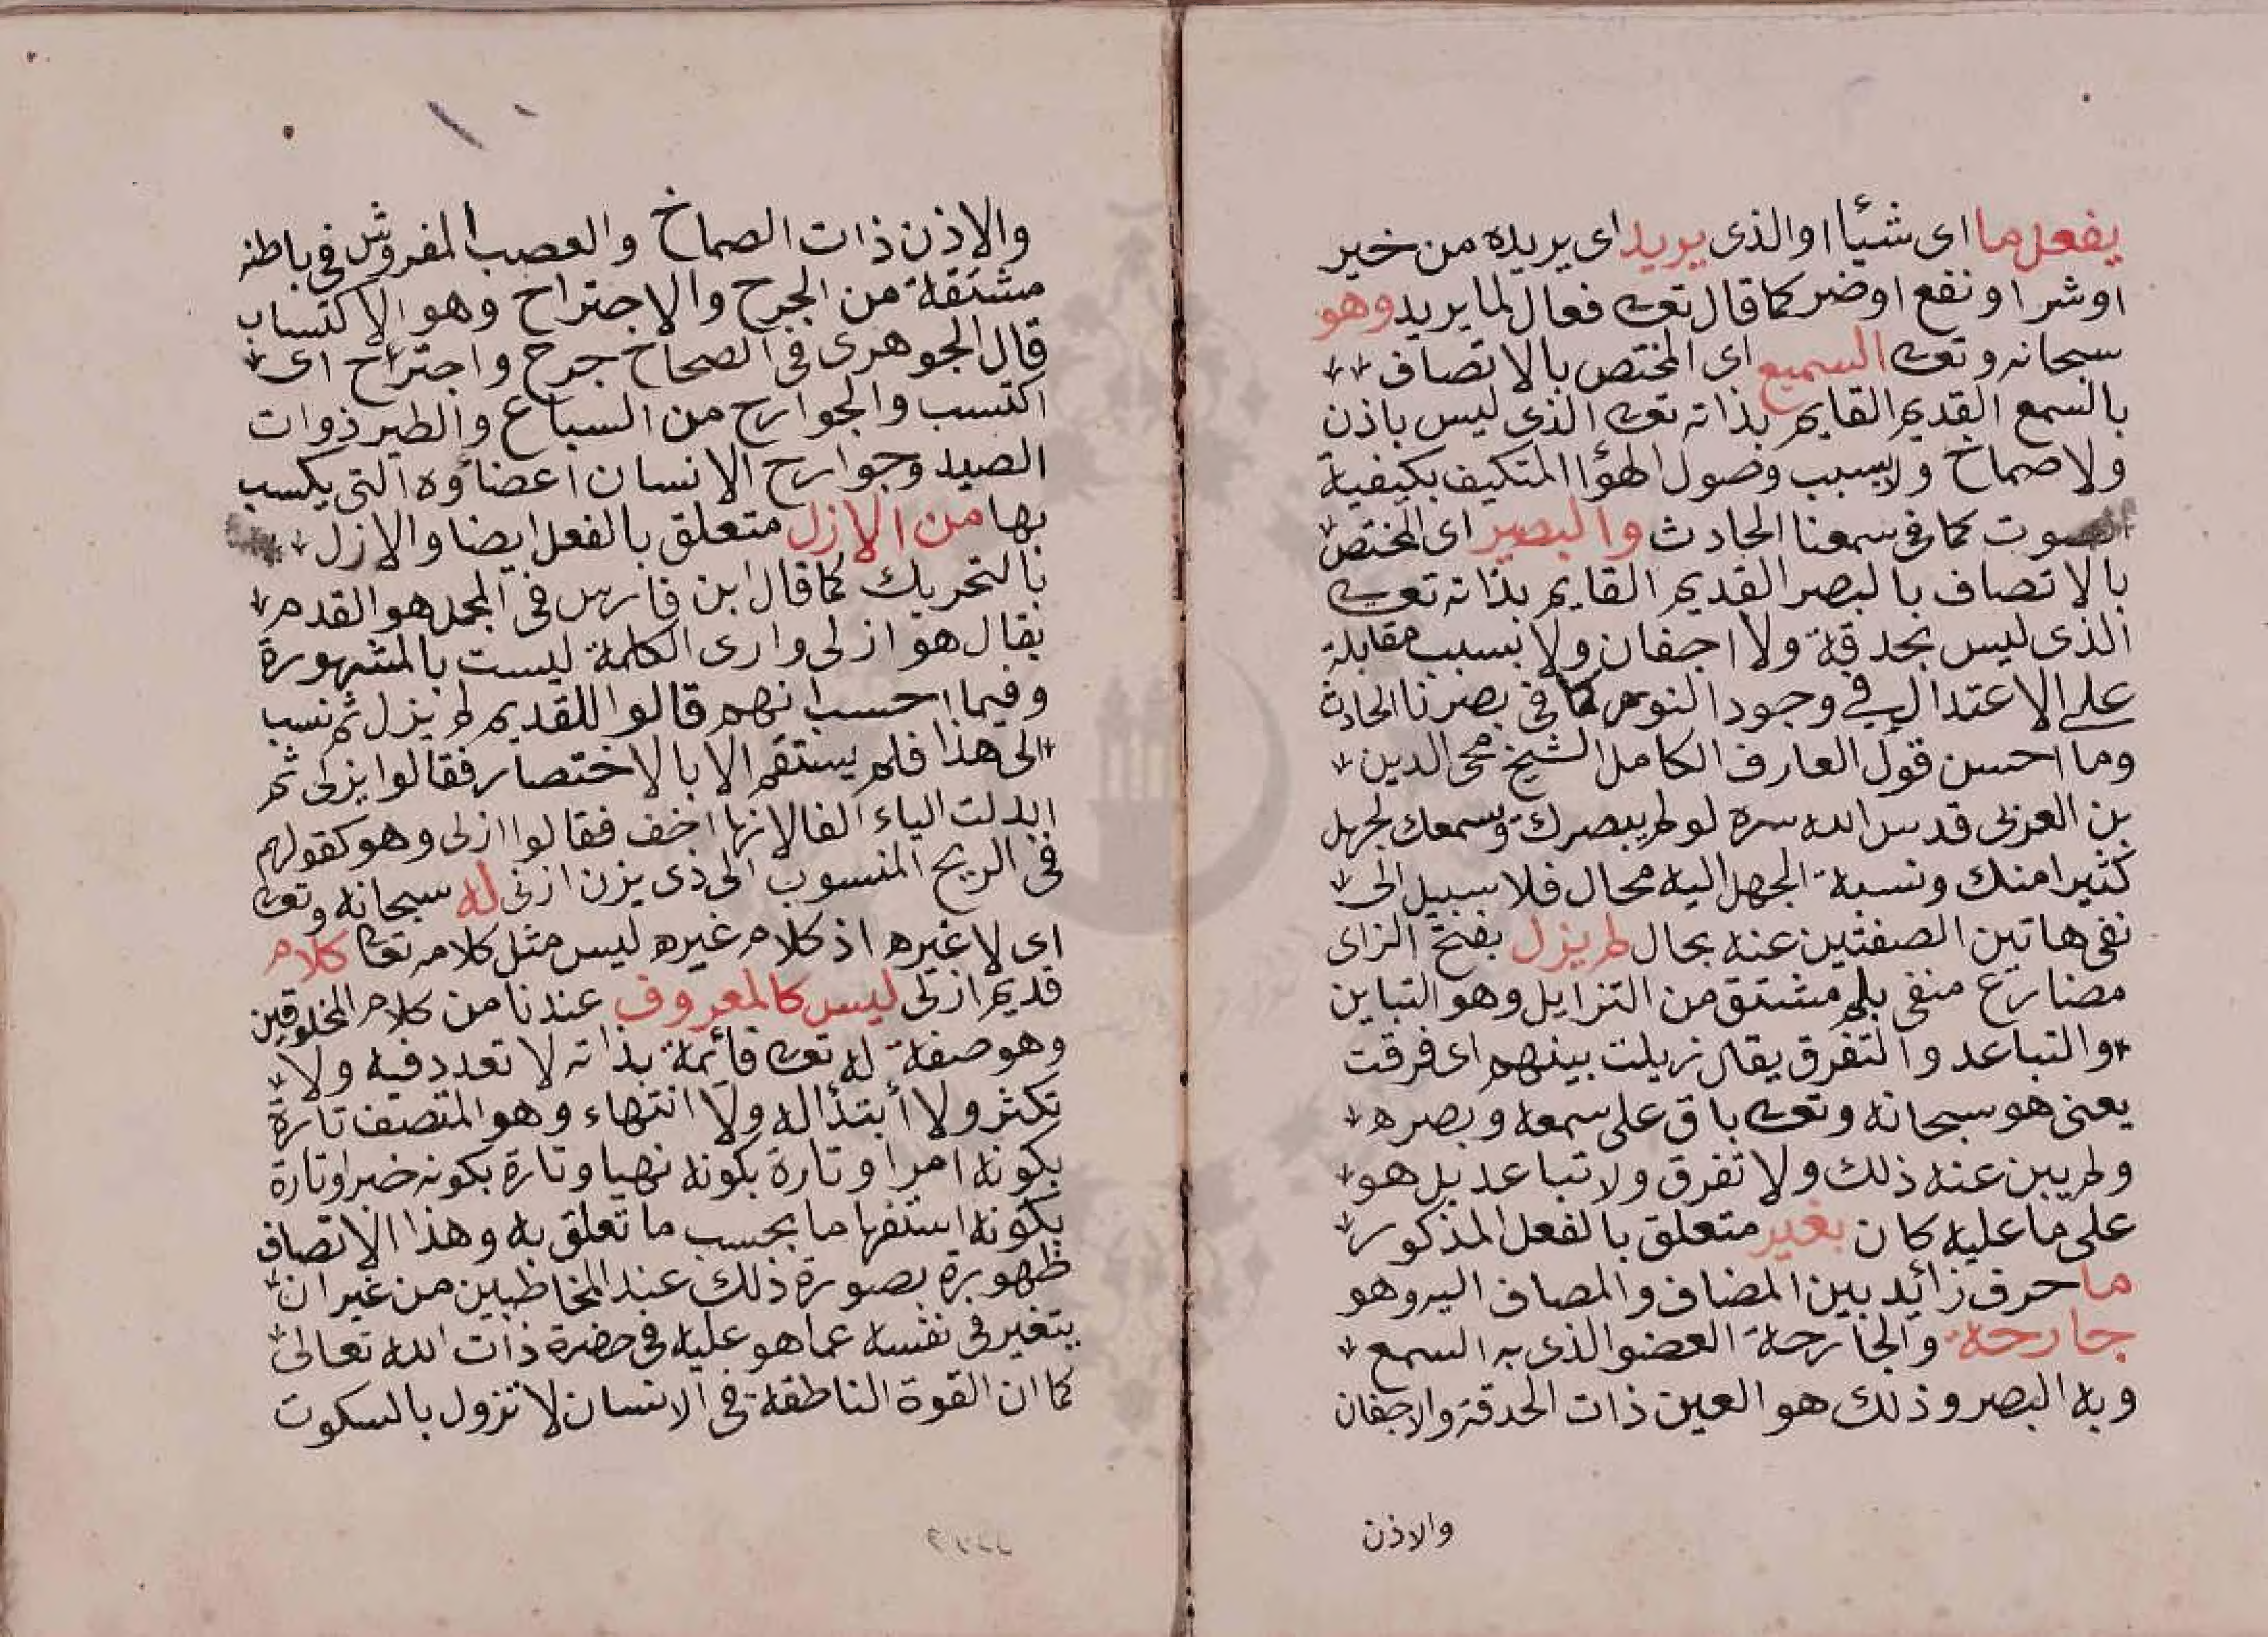 يفعل ما اى شيئا اوالذى يريد اى يريده من خير
اوشر اونفع اوضر كما قال تعالى فعال لما يريد وهو
سبحانه وتعالى السميع اى المختص بالاتصاف
بالسمع القديم القايم بذاته تعالى الذى ليس باذن
ولاصماخ ولابسبب وصول الهوٓا المتكيف بكيفية
الصوت كما فى سمعنا الحادث والبصير اى المختص
بالاتصاف بالبصر القديم القايم بذاته تعالى
الذى ليس بحدقة ولا اجفان ولا بسبب مقابلة
على الاعتدال فى وجود النور كما فى بصرنا الحادث
وما احسن قول العارف الكامل الشيخ محى الدين
بن العربى قدس الله سره لو لم يبصرك ويسمعك لجهل
كثيرا منك ونسبة الجهل اليه محال فلا سبيل الى
نفى هاتين الصفتين عنه بحال لم يزل بفتح الزاى
مضارع منفى بلم مشتق من التزايل وهو التباين
والتباعد والتفرق يقال زيلت بينهم اى فرقت
يعنى هو سبحانه وتعالى باق على سمعه وبصره
ولم يبن عنه ذلك ولا تفرق ولا تباعد بل هو
على ما عليه كان بغير متعلق بالفعل المذكور
ما حرف زائد بين المضاف والمضاف اليه وهو
جارحة والجارحة العضو الذى به السمع
وبه البصر وذلك هو العين ذات الحدقة والاجفان
والاذن
١٠
والاذن ذات الصماخ والعصب المفروش فى باطنه
مشتقة من الجرح والاجتراح وهو الاكتساب
قال الجوهرى فى الصحاح جرح واجترح اى
اكتسب والجوارح من السباع والطير ذوات
الصيد وجوارح الانسان اعضاؤه التى يكسب
بها من الازل متعلق بالفعل ايضا والازل
بالتحريك كما قال ابن فارس فى المجمل هو القدم
يقال هو ازلى وارى الكلمة ليست بالمشهورة
وفيما احسب انهم قالوا للقديم لم يزل ثم نسب
الى هذا فلم يستقم الا بالاختصار فقالوا يزلى ثم
ابدلت الياء الفا لانها اخف فقالوا ازلى وهو كقولهم
فى الريح المنسوب الى ذى يزن ازنى له سبحانه وتعالى
اى لا غيره اذ كلام غيره ليس مثل كلامه تعا كلام
قديم ازلى ليس كالمعروف عندنا من كلام المخلوقين
وهو صفة له تعالى قائمة بذاته لا تعدد فيه ولا
تكثر ولا أبتدٓا له ولا انتهاء وهو المتصف تارة
بكونه امرا وتارة بكونه نهيا وتارة بكونه خبرا وتارة
بكونه استفهاما بحسب ما تعلق به وهذا الاتصاف
ظهوره بصورة ذلك عند المخاطبين من غير ان
يتغير فى نفسه عما هو عليه فى حضرة ذات الله تعالى
كما ان القوة الناطقة فى الانسان لا تزول بالسكوت